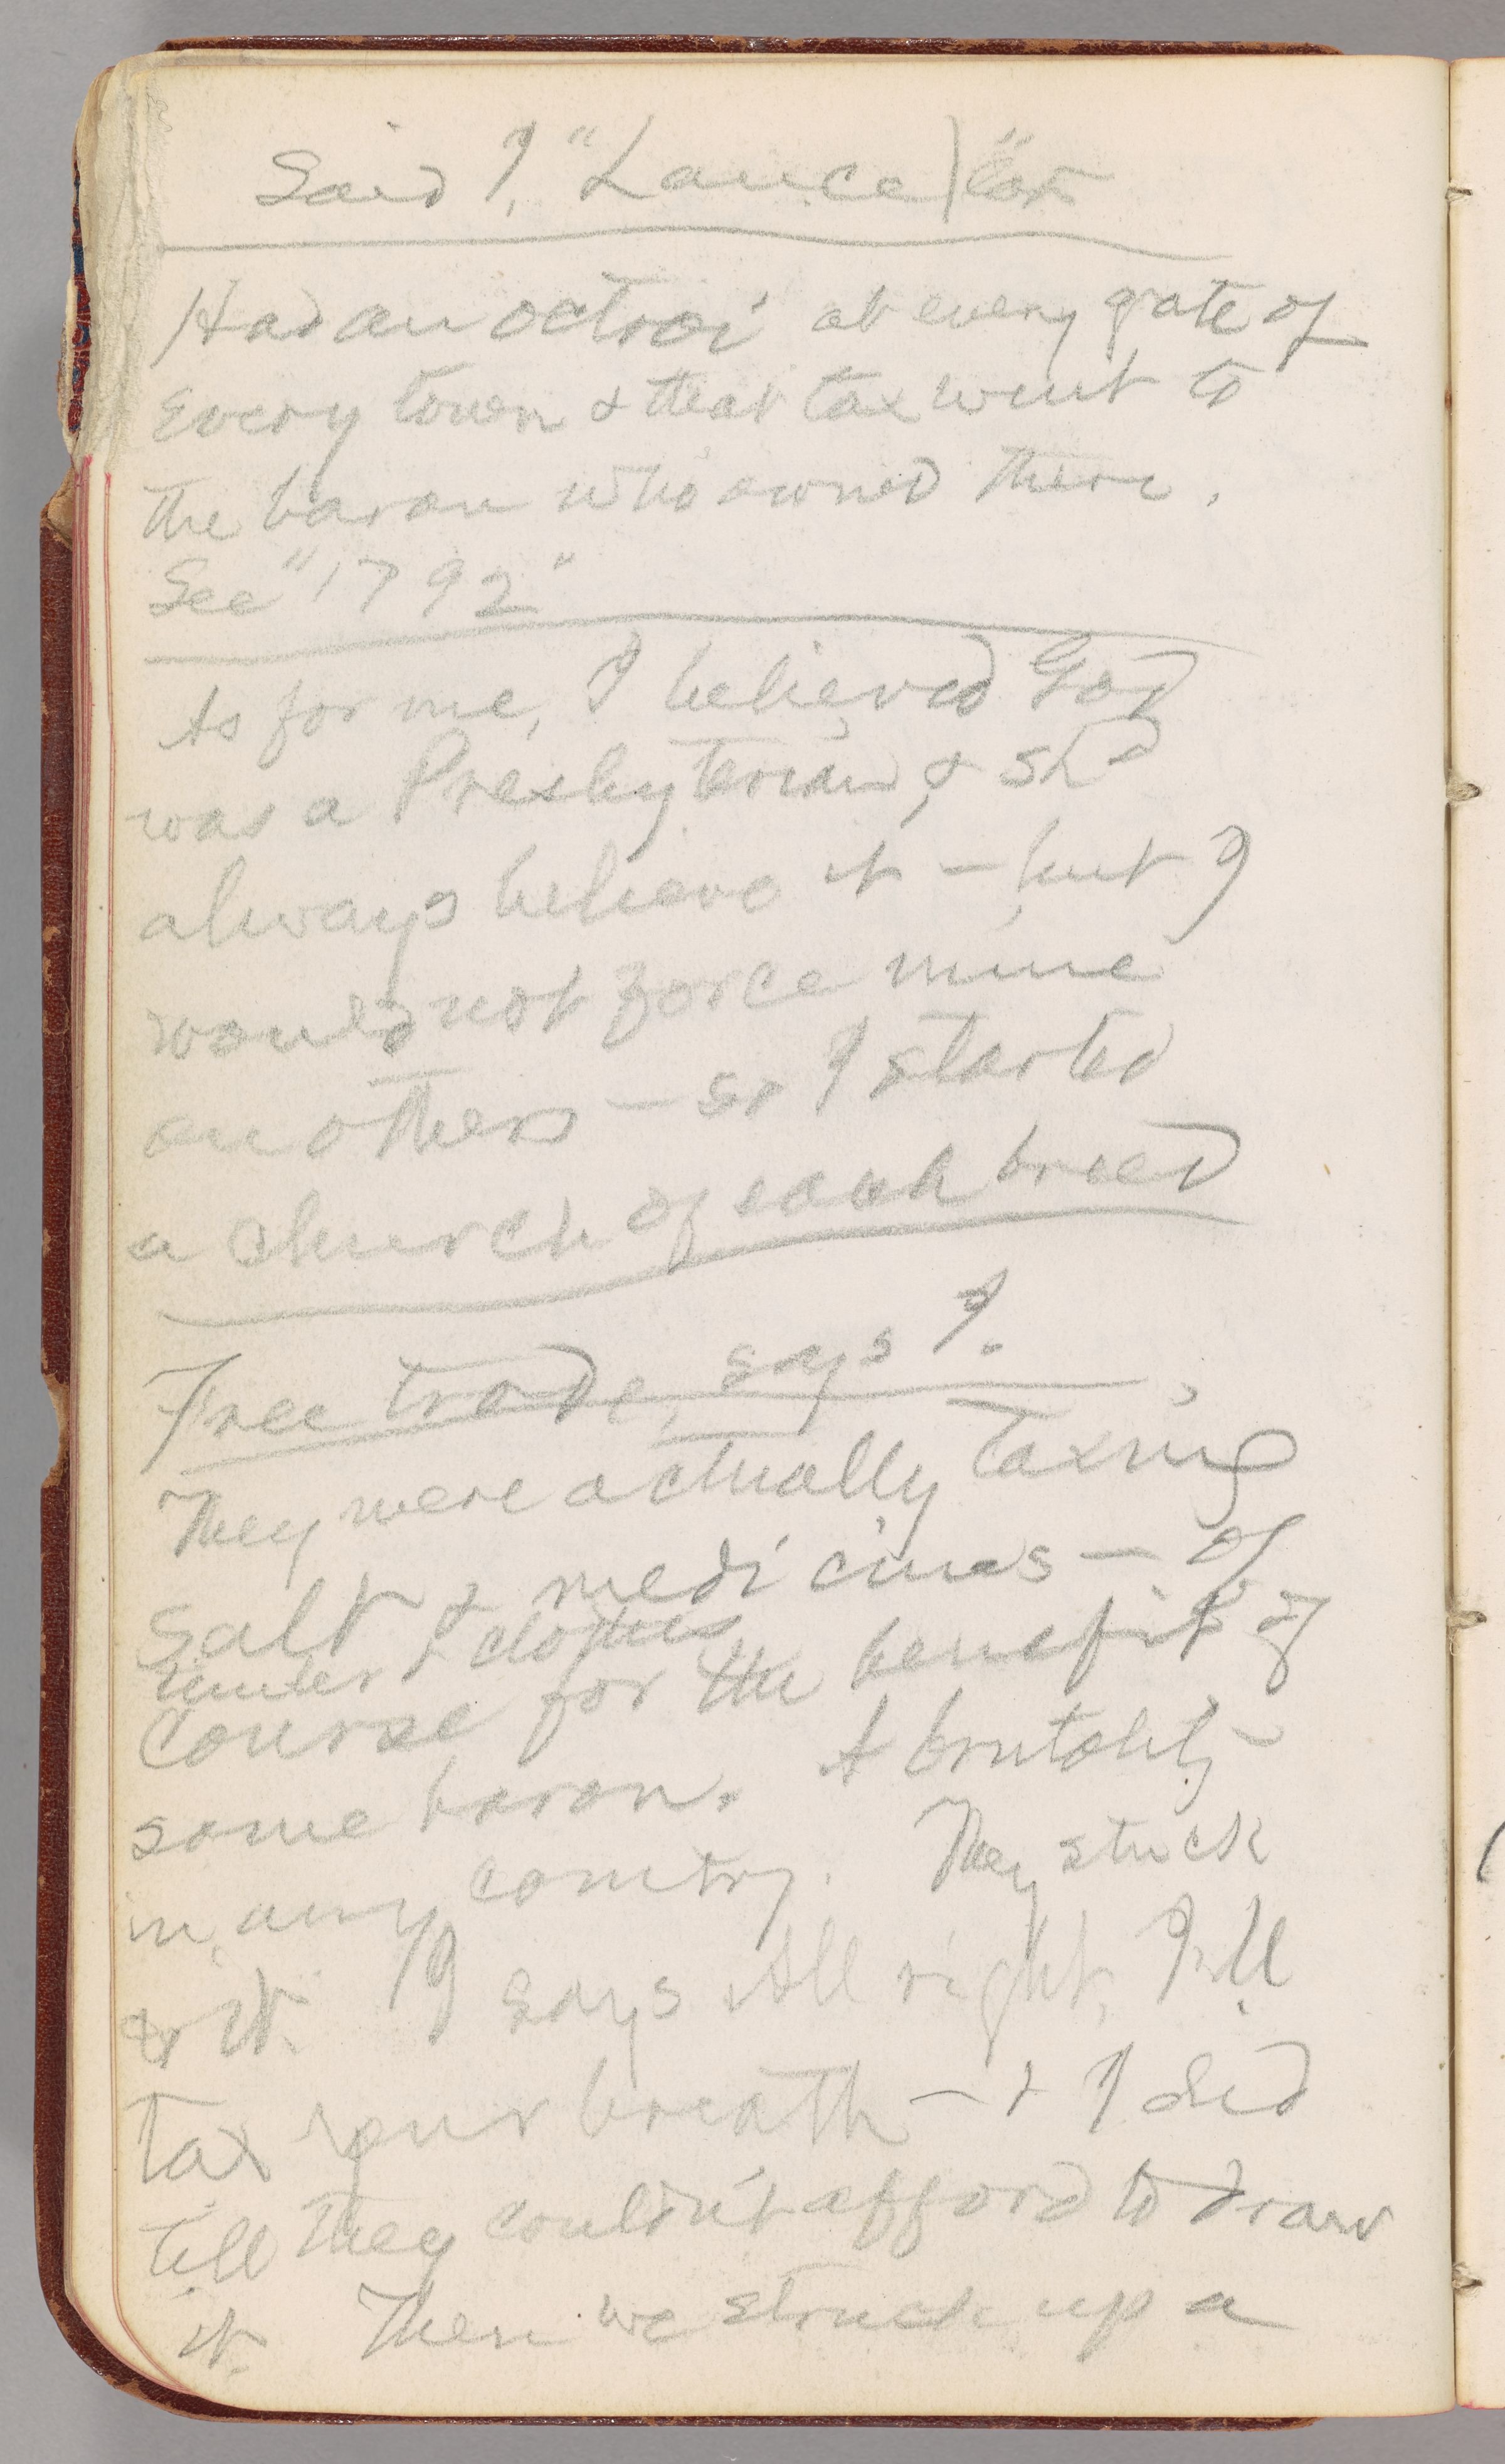 Said I, "Lance)lot"
Had an octroi at every gate of
every town & that tax went to
the baron who owned there.
See "1792"
As for me, I believed God
was a Presbyterian, & shd
always believe it — but I
would not force mine
on others — so I started
a church of each breed
Free trade, says I.
They were actually taxing
salt & medicines — of
& clothes
course for the benefit of
some baron. A brutality
in any country. They stuck
to it. I says All right, I'll
tax your breath — & I did
till they couldn't afford to draw
it. Then we struck up a